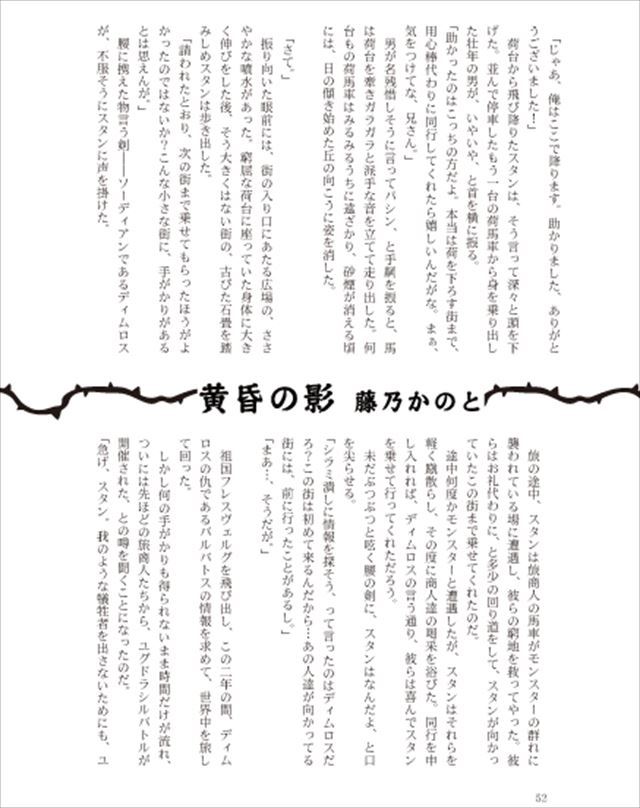 「じゃあ、俺はここで降ります。助かりました、ありがと
うございました！」
　荷台から飛び降りたスタンは、そう言って深々と頭を下
げた。並んで停車したもう一台の荷馬車から身を乗り出し
た壮年の男が、いやいや、と首を横に振る。
「助かったのはこっちの方だよ。本当は荷を下ろす街まで、
用心棒代わりに同行してくれたら嬉しいんだがな。まぁ、
気をつけてな、兄さん。」
　男が名残惜しそうに言ってパシン、と手綱を振ると、馬
は荷台を牽きガラガラと派手な音を立てて走り出した。何
台もの荷馬車はみるみるうちに遠ざかり、砂煙が消える頃
には、日の傾き始めた丘の向こうに姿を消した。
「さて。」
　振り向いた眼前には、街の入り口にあたる広場の、ささ
やかな噴水があった。窮屈な荷台に座っていた身体に大き
く伸びをした後、そう大きくはない街の、古びた石畳を踏
みしめスタンは歩き出した。
「請われたとおり、次の街まで乗せてもらったほうがよ
かったのではないか？こんな小さな街に、手がかりがある
とは思えんが。」
　腰に携えた物言う剣――ソーディアンであるディムロス
が、不服そうにスタンに声を掛けた。
黄昏の影 藤乃かのと
　旅の途中、スタンは旅商人の馬車がモンスターの群れに
襲われている場に遭遇し、彼らの窮地を救ってやった。彼
らはお礼代わりに、と多少の回り道をして、スタンが向かっ
ていたこの街まで乗せてくれたのだ。
　途中何度かモンスターと遭遇したが、スタンはそれらを
軽く蹴散らし、その度に商人達の喝采を浴びた。同行を申
し入れれば、ディムロスの言う通り、彼らは喜んでスタン
を乗せて行ってくれただろう。
　未だぶつぶつと呟く腰の剣に、スタンはなんだよ、と口
を尖らせる。
「シラミ潰しに情報を探そう、って言ったのはディムロスだ
ろ？この街は初めて来るんだから…あの人達が向かってる
街には、前に行ったことがあるし。」
「まあ…、そうだが。」
　祖国フレスヴェルグを飛び出し、この二年の間、ディム
ロスの仇であるバルバトスの情報を求めて、世界中を旅し
て回った。
　しかし何の手がかりも得られないまま時間だけが流れ、
ついには先ほどの旅商人たちから、ユグドラシルバトルが
開催された、との噂を聞くことになったのだ。
「急げ、スタン。我のような犠牲者を出さないためにも、ユ
52